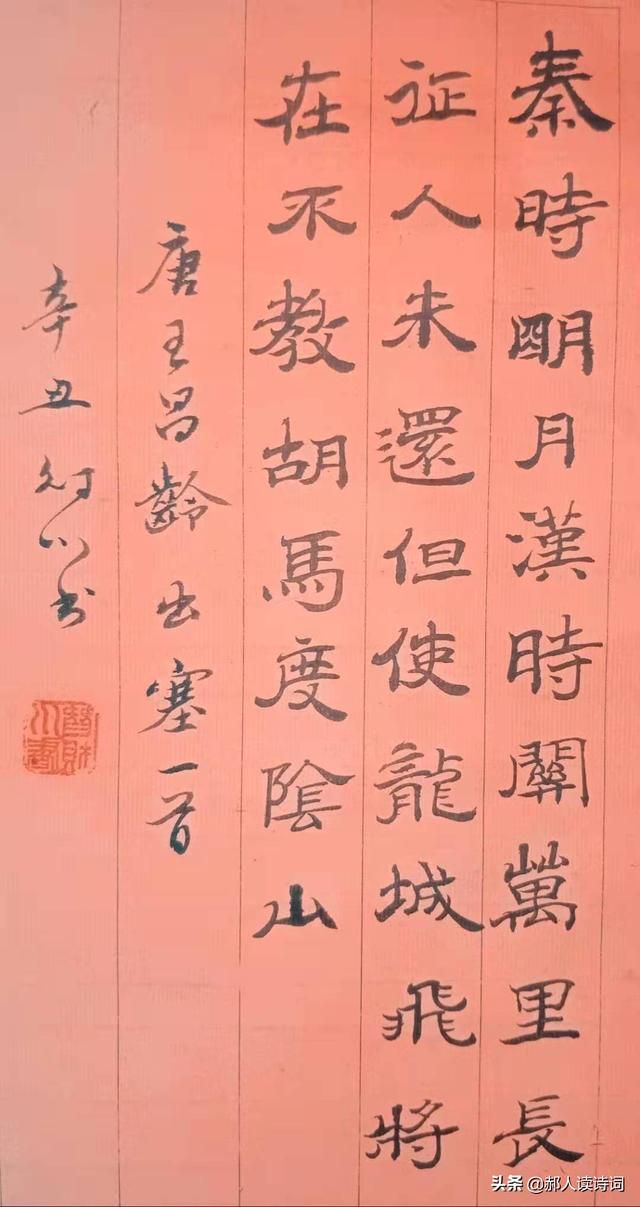 秦時明月漢時關萬里長
征人未還但使龍城飛將
在不教胡馬度陰山
唐王昌齡出塞一首
辛丑书
头条 @郝人读诗词